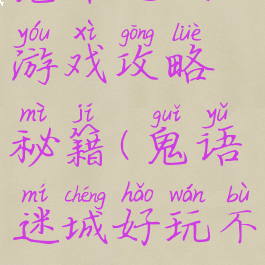 yóu xì gōng lüè
游戏攻略
mì jí guǐ yǔ
秘籍(鬼语
mí chéng hǎo wán bù
迷城好玩不